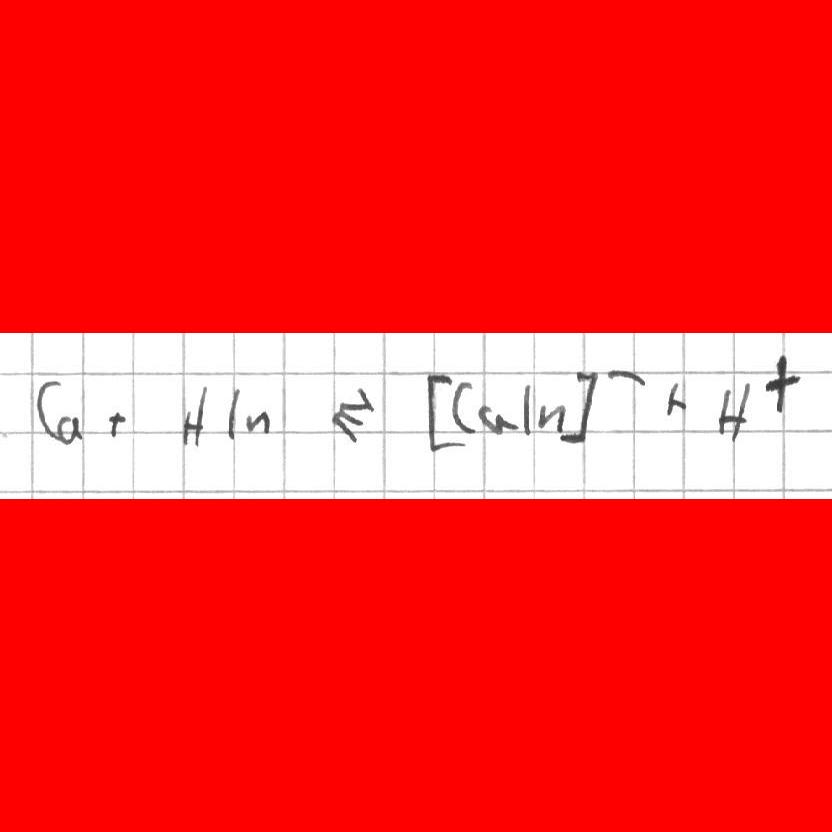 Ca + HIn ⇌ [CaIn]⁻ + H⁺